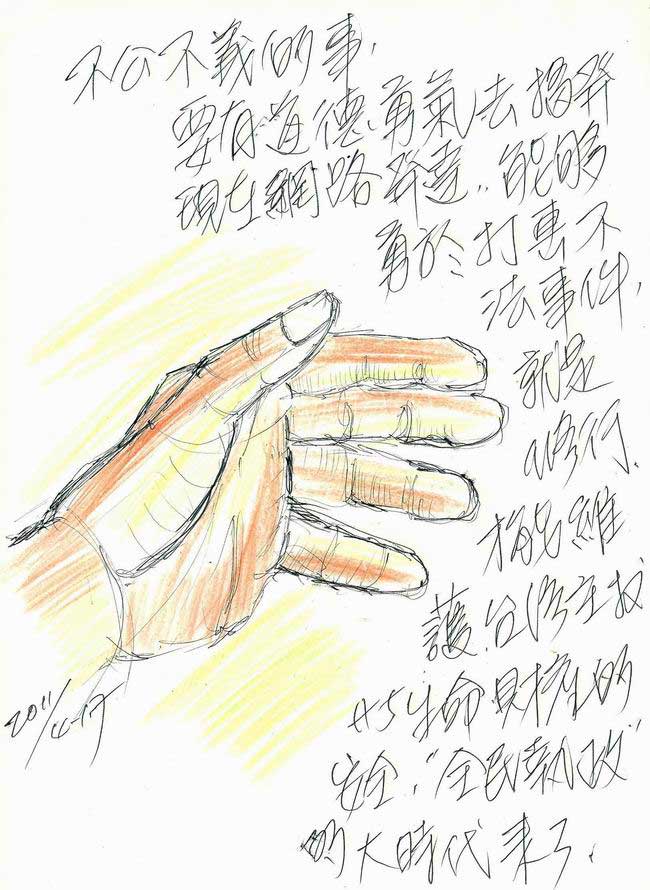 不公不義的事,
要有道德勇氣去揭發
現在網路發達,,能够
勇於打不
法事件,
就是
修行.
才能維
護台灣主权
生命財產的
安全,"全民執政"
的大時代来了.
2011/4-17